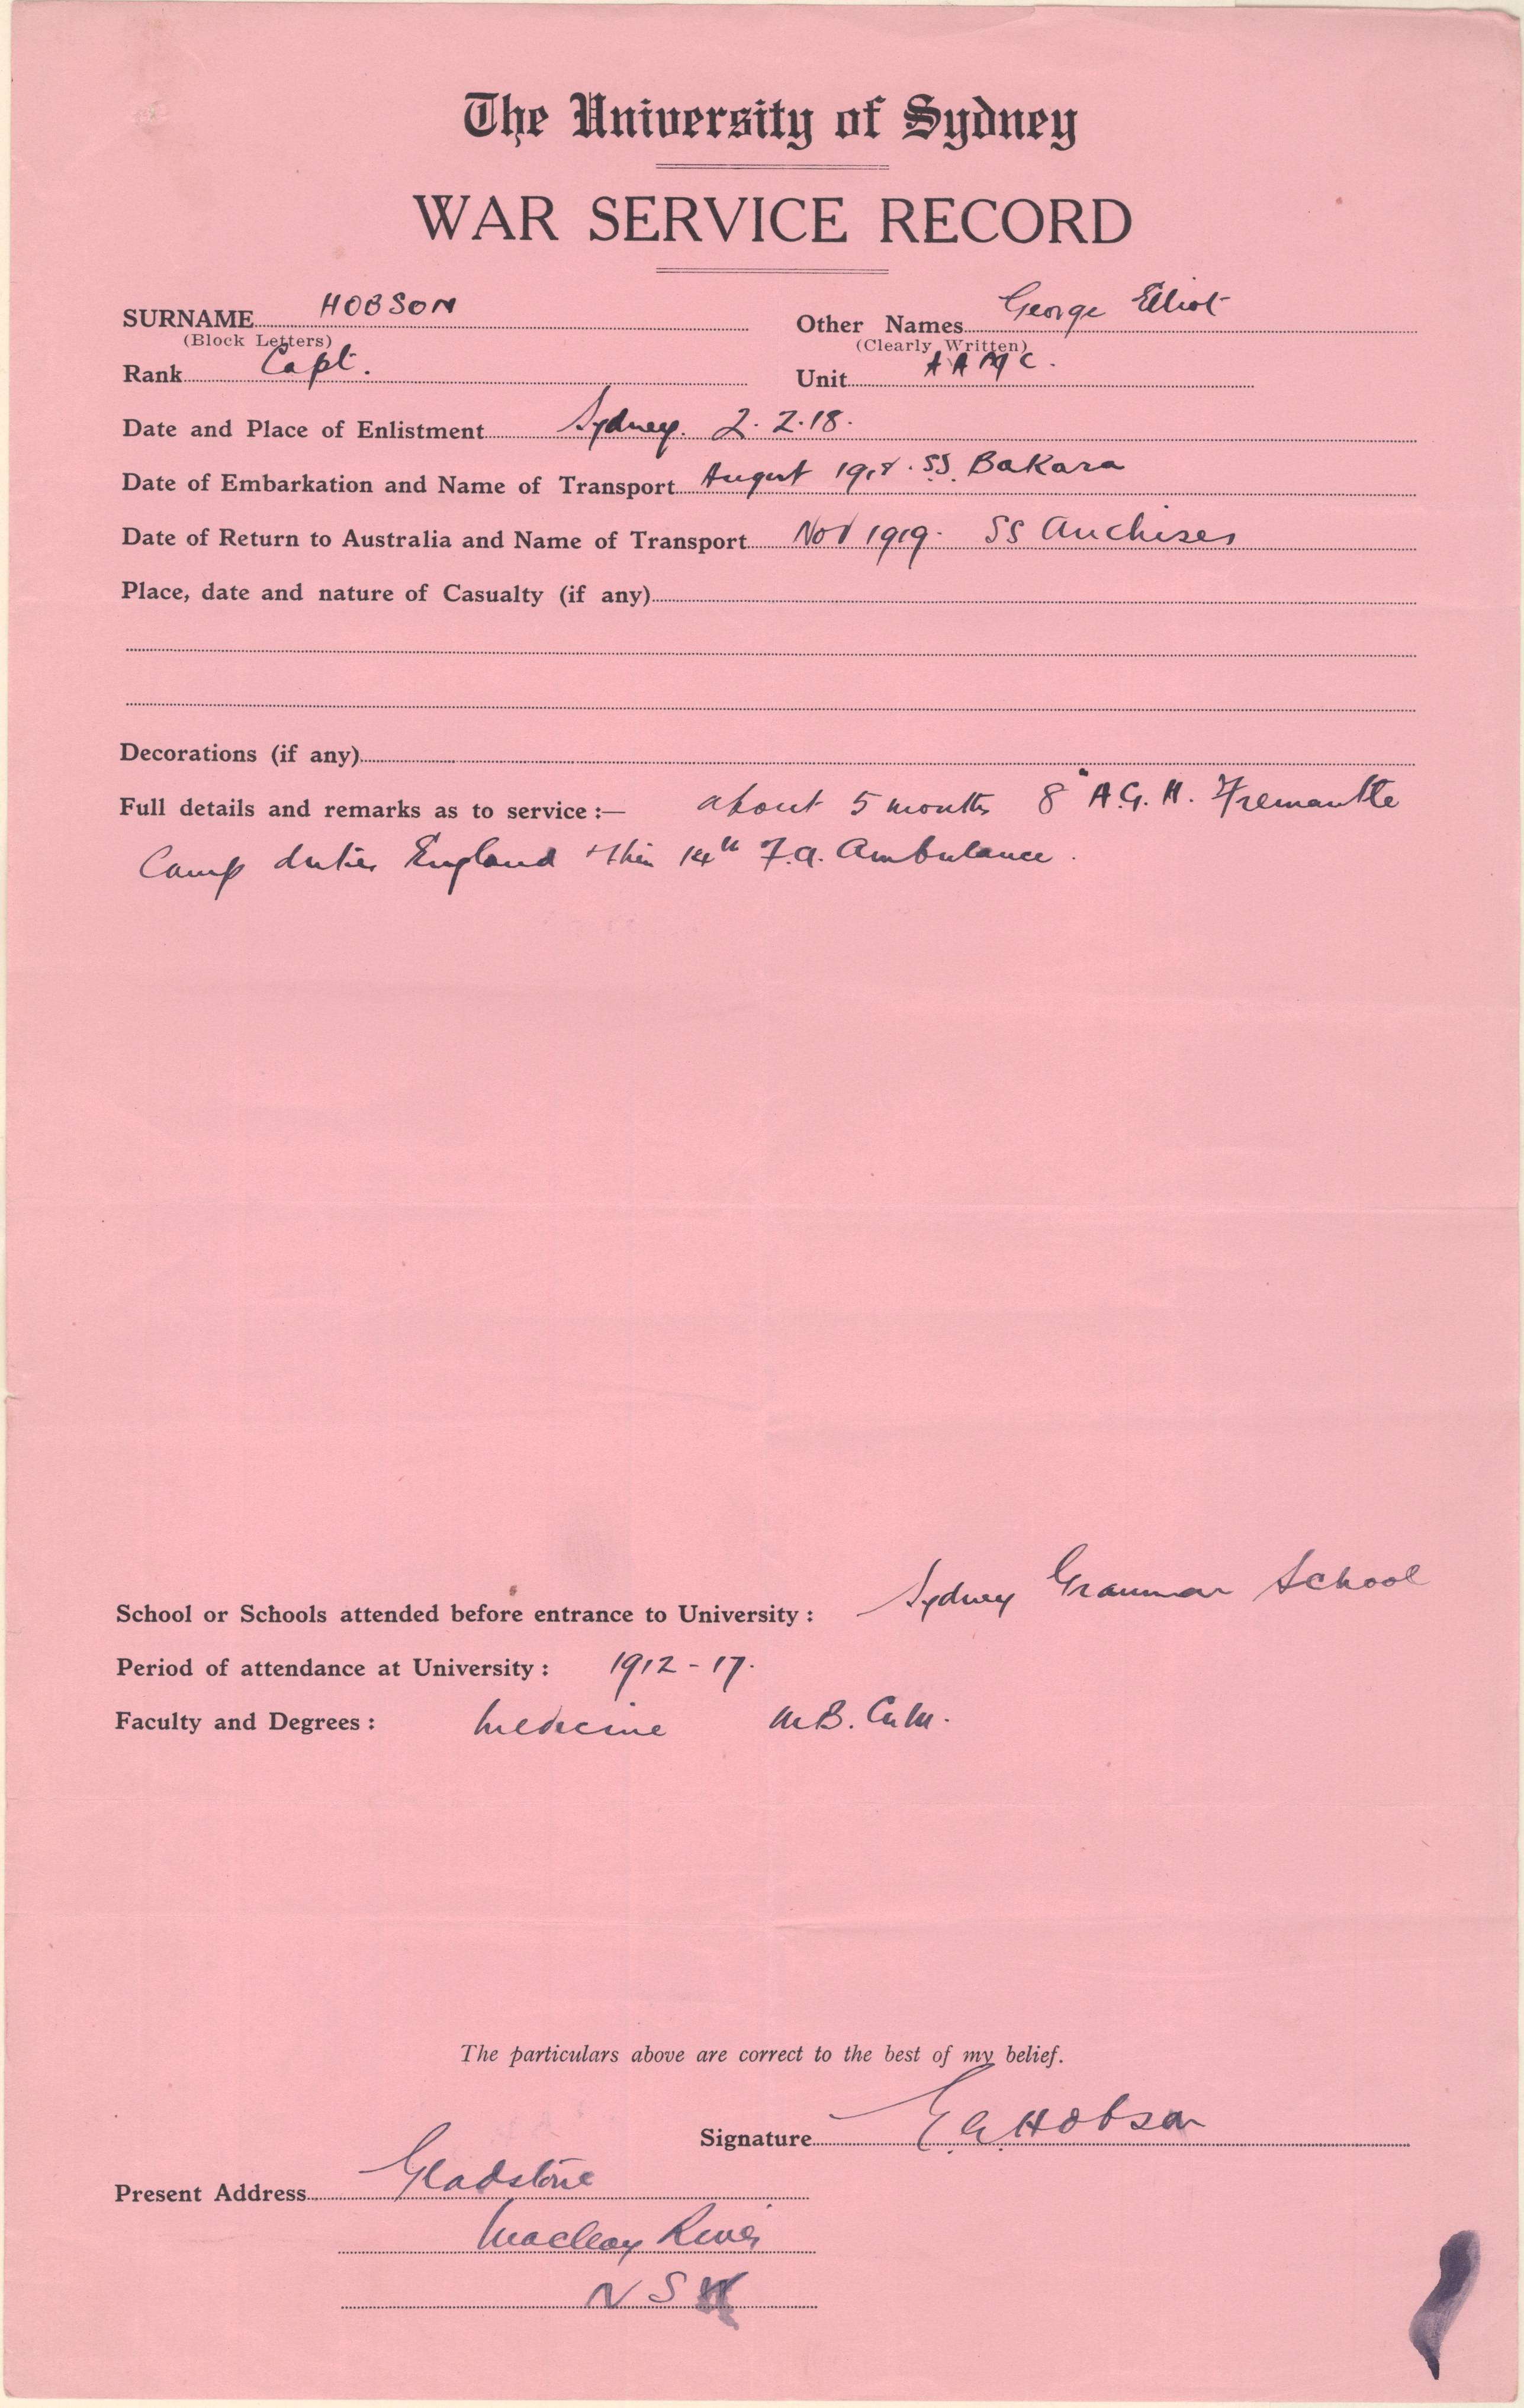 The University of Sydney
WAR SERVICE RECORD
SURNAME HOBSON Other Names George Elliot
(Block Letters) (Clearly Written)
Rank Capt. Unit AAMC.
Date and Place of Enlistment Sydney. 2.2.18.
Date of Embarkation and Name of Transport August 1918. SS. Bakara
Date of Return to Australia and Name of Transport Nov 1919. SS Anchises
Place, date and nature of Casualty (if any)
Decorations (if any)
Full details and remarks as to service :— about 5 months 8" A.G.H. Fremantle
Camp duties England then 14th F.a. Ambulance.
School or Schools attended before entrance to University : Sydney Grammar School
Period of attendance at University : 1912-17.
Faculty and Degrees : Medicine M.B. Ch.M.
The particulars above are correct to the best of my belief.
Signature Hobson
Present Address Gladstone
Macleay River
NSW